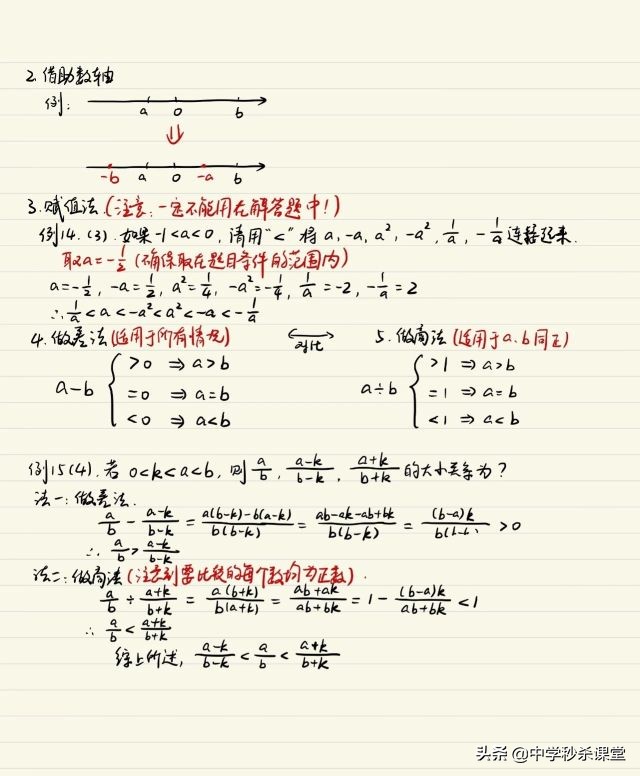 2.借助数轴
例:
a 0 b
⇓
-b a 0 -a b
3.赋值法(注意:一定不能用在解答题中!)
例14.(3).如果-1<a<0,请用"<"将a,-a,a²,-a²,1/a,-1/a连接起来.
取a=-1/2(确保取在题目条件的范围内)
a=-1/2,-a=1/2,a²=1/4,-a²=-1/4,1/a=-2,-1/a=2
∴1/a<a<-a²<a²<-a<-1/a
4.做差法(适用于所有情况) ⟷ 对比 5.做商法(适用于a、b同正)
a-b { >0 ⇒ a>b a÷b { >1 ⇒ a>b
=0 ⇒ a=b =1 ⇒ a=b
<0 ⇒ a<b <1 ⇒ a<b
例15(4).若 0<k<a<b,则 a/b,(a-k)/(b-k),(a+k)/(b+k)的大小关系为?
法一:做差法.
a/b - (a-k)/(b-k) = (a(b-k)-b(a-k))/(b(b-k)) = (ab-ak-ab+bk)/(b(b-k)) = ((b-a)k)/(b(b-k)) >0
∴ a/b > (a-k)/(b-k)
法二:做商法(注意到要比较的每个数均为正数).
a/b ÷ (a+k)/(b+k) = (a(b+k))/(b(a+k)) = (ab+ak)/(ab+bk) = 1 - ((b-a)k)/(ab+bk) <1
∴ a/b < (a+k)/(b+k)
综上所述,(a-k)/(b-k) < a/b < (a+k)/(b+k)
头条 @中学秒杀课堂